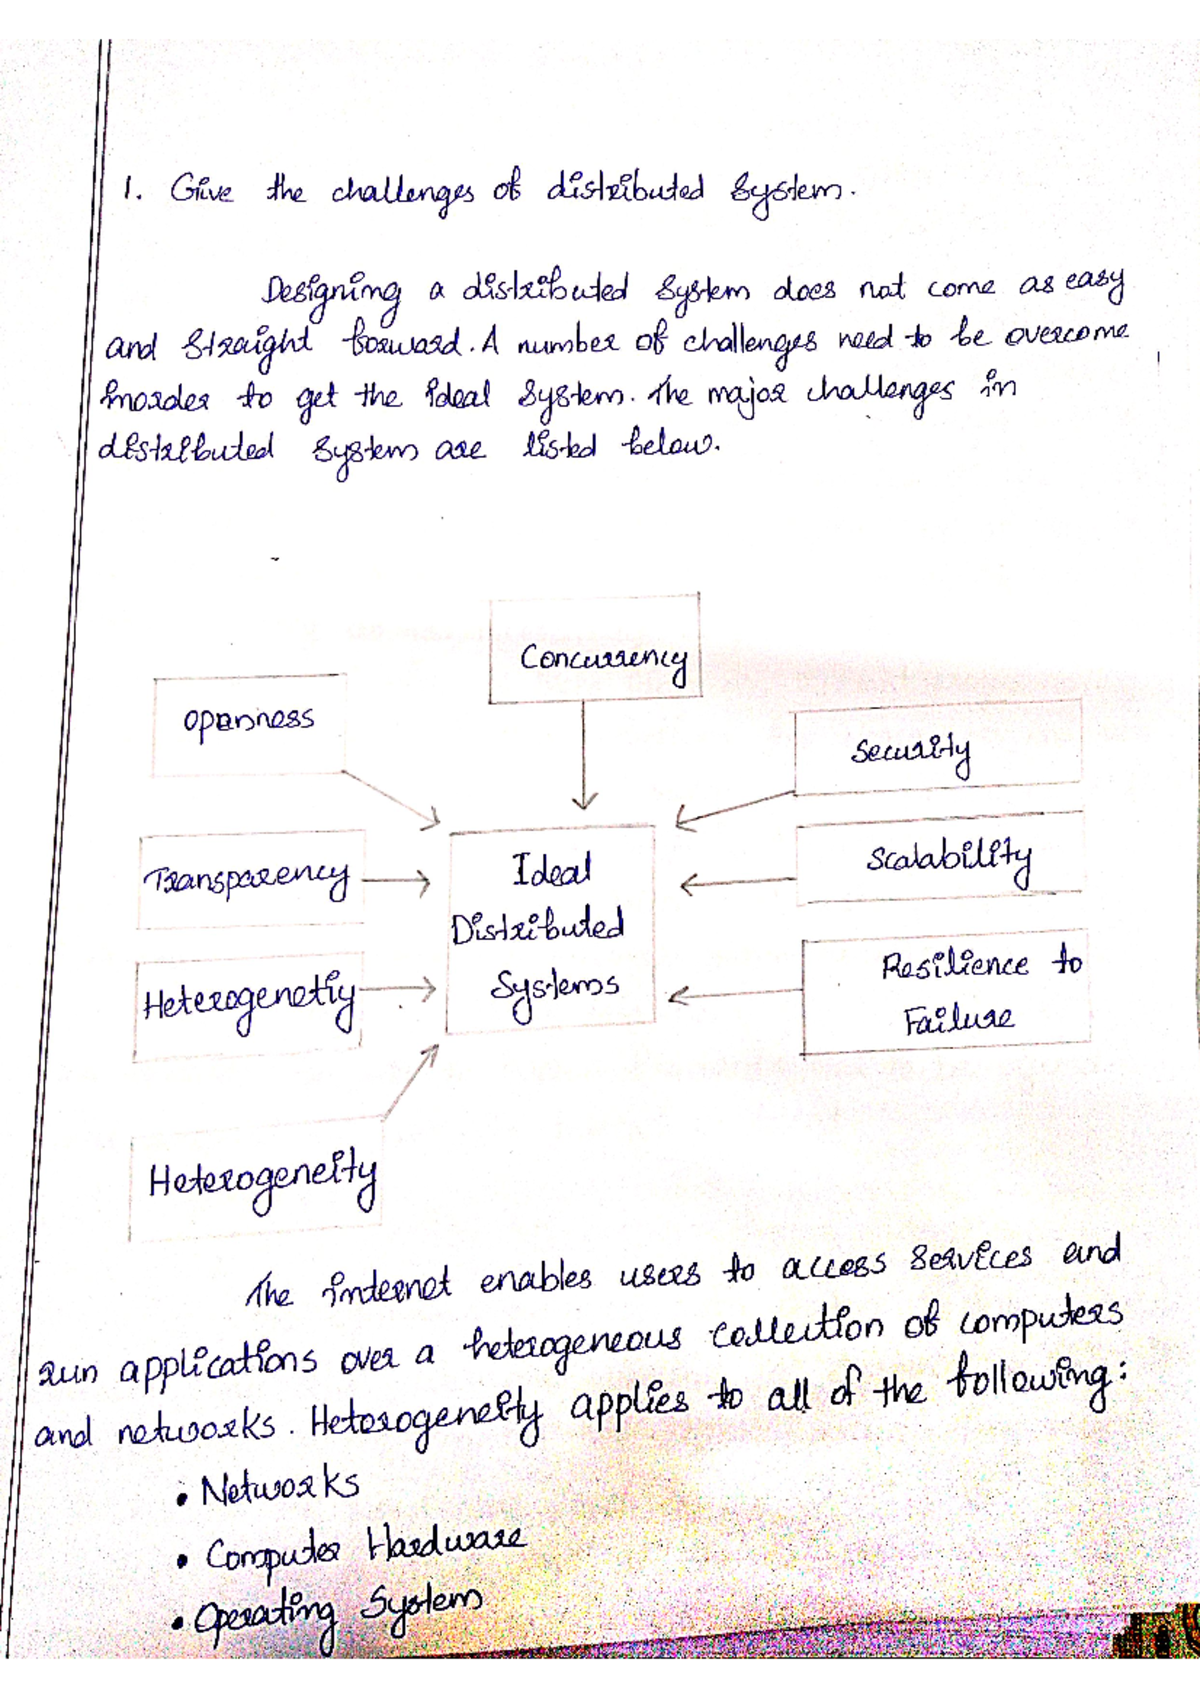 1. Give the challenges of distributed system.
Designing a distributed system does not come as easy
and straight forward. A number of challenges need to be overcome
inorder to get the ideal system. The major challenges in
distributed system are listed below.
Concurrency
Openness
Security
Transparency
Ideal
Distributed
Systems
Scalability
Heterogenetiy
Resilience to
Failure
Heterogeneity
The internet enables users to access services and
run applications over a heterogeneous collection of computers
and networks. Heterogeneity applies to all of the following:
• Networks
• Computer Hardware
• Operating System